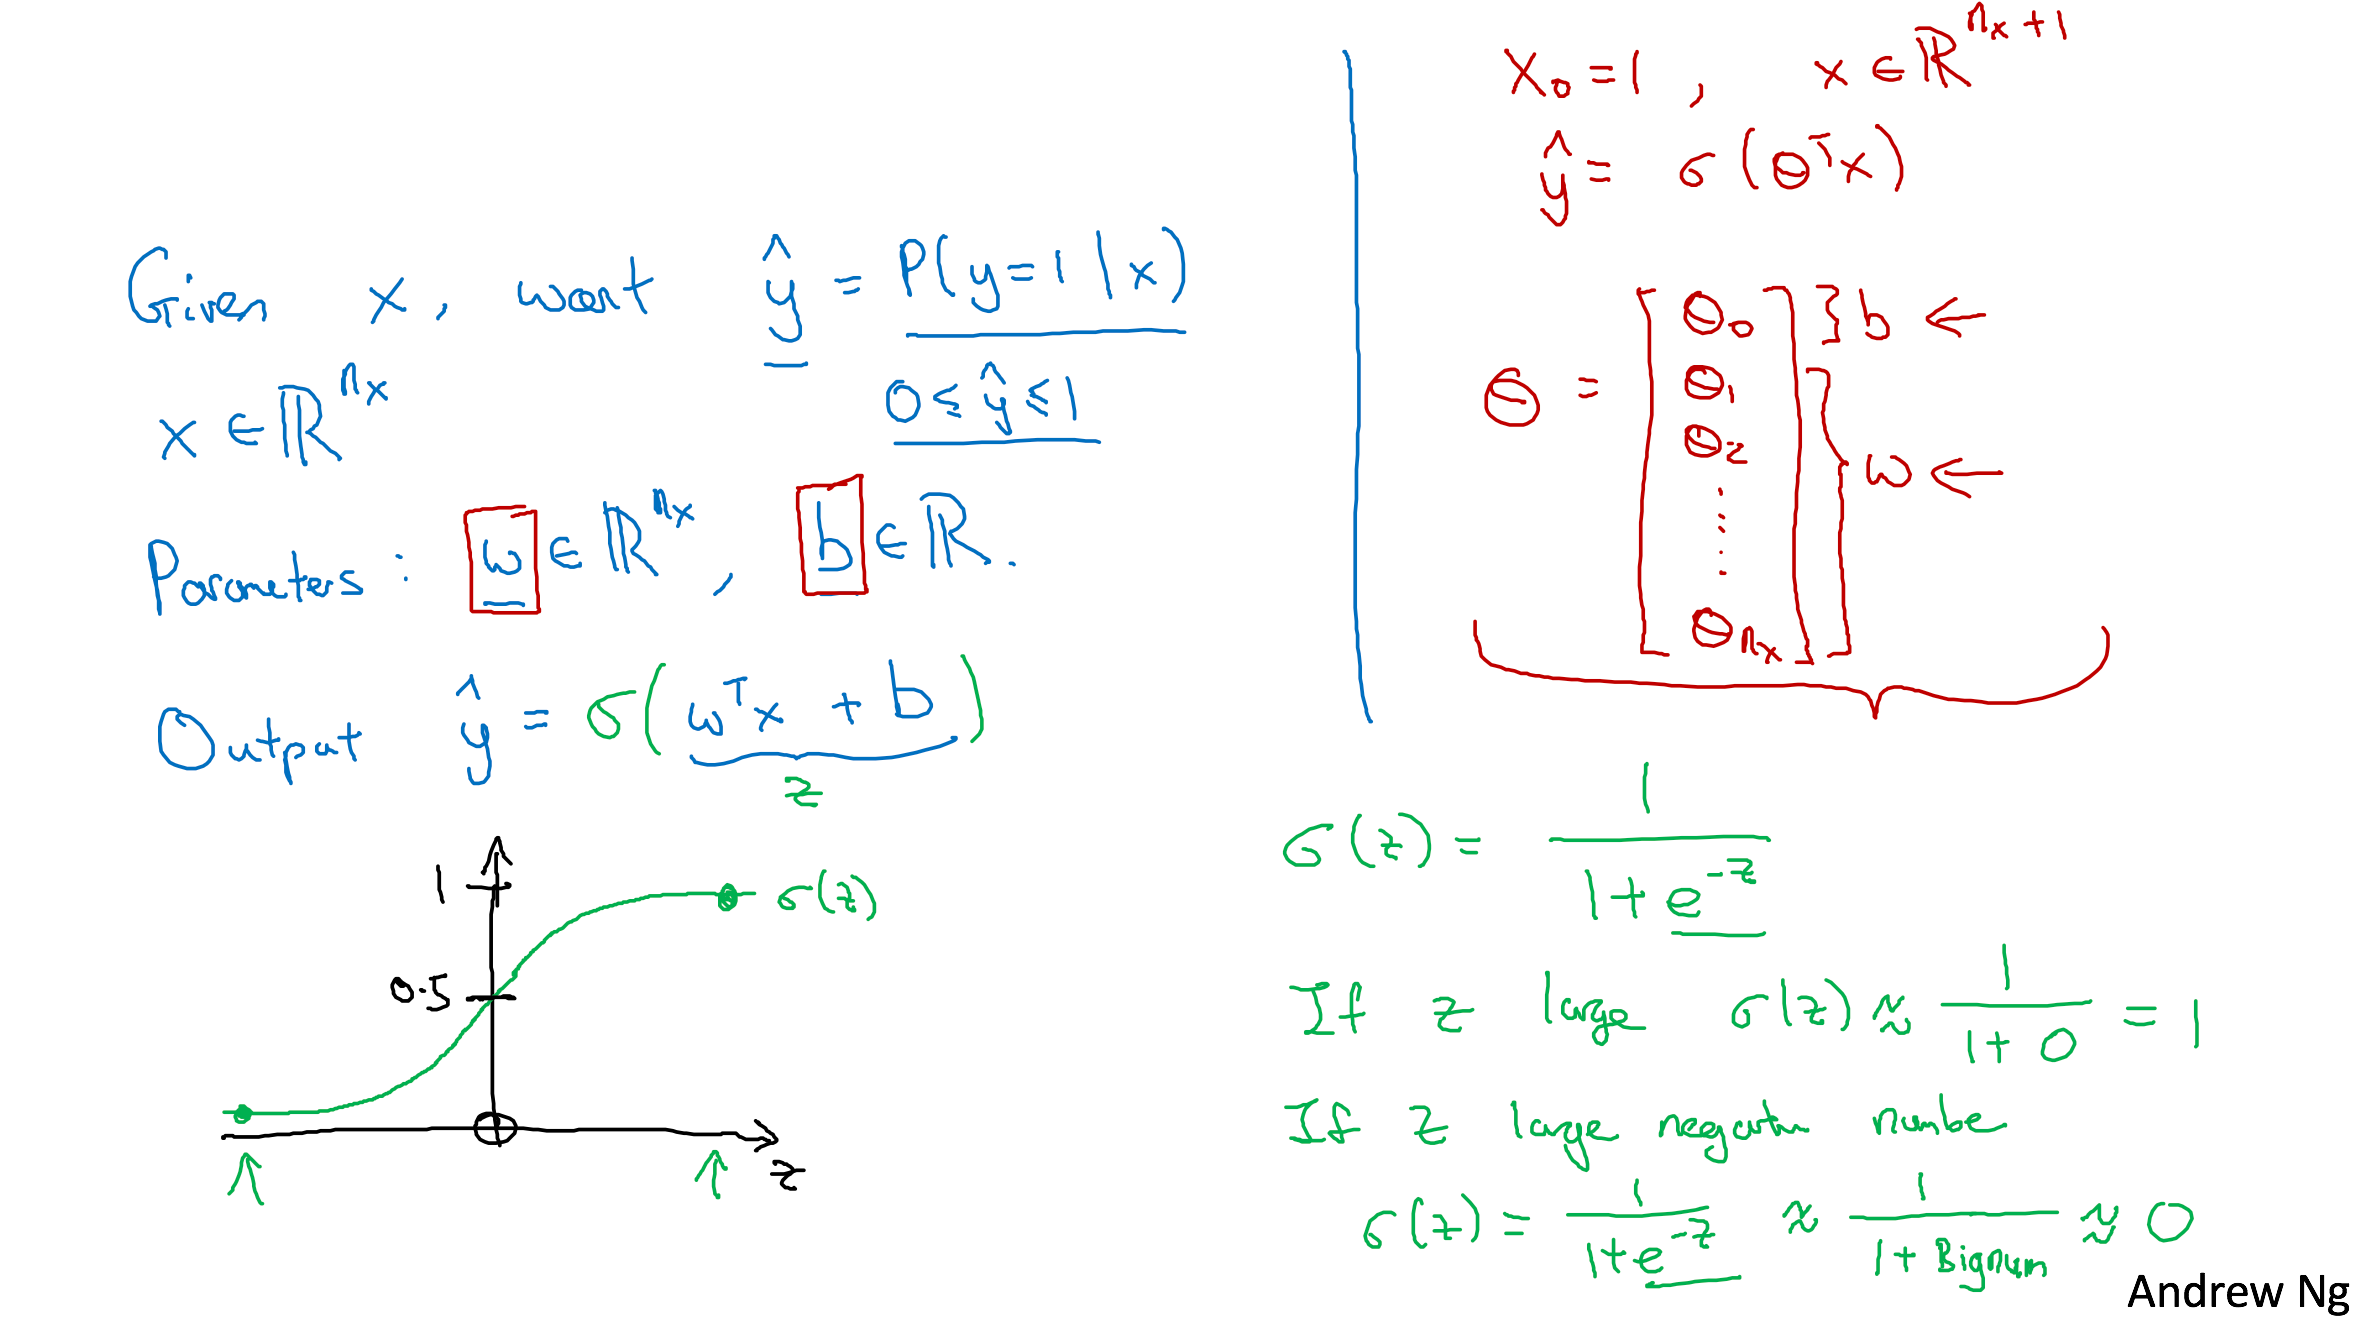 Given x, want ŷ = P(y=1 | x)
x ∈ ℝ^{n_x}
0 ≤ ŷ ≤ 1
Parameters: w ∈ ℝ^{n_x}, b ∈ ℝ.
Output ŷ = σ(w^T x + b)
z
1
σ(z)
0.5
z
x_0 = 1, x ∈ ℝ^{n_x + 1}
ŷ = σ(θ^T x)
θ = [θ_0 θ_1 θ_2 ⋮ θ_{n_x}]
} b ←
} w ←
σ(z) = 1 / (1 + e^{-z})
If z large σ(z) ≈ 1 / (1 + 0) = 1
If z large negative number
σ(z) = 1 / (1 + e^{-z}) ≈ 1 / (1 + Bignum) ≈ 0
Andrew Ng